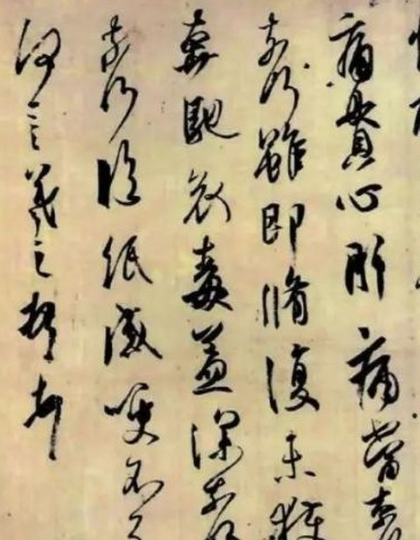 痛貫心肝痛當奈
奈何雖即脩復未獲
奔馳哀毒益深奈何
奈何臨紙感哽不
何言羲之頓首